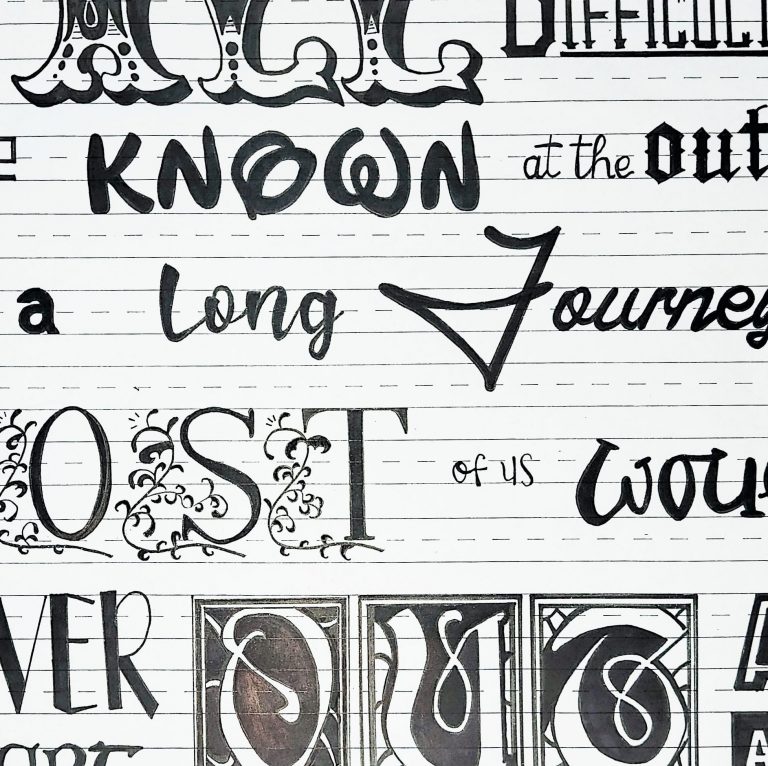 ALL DIFFICULT
KNOWN at the out
a Long Journey
OST of us wou
VER OUT